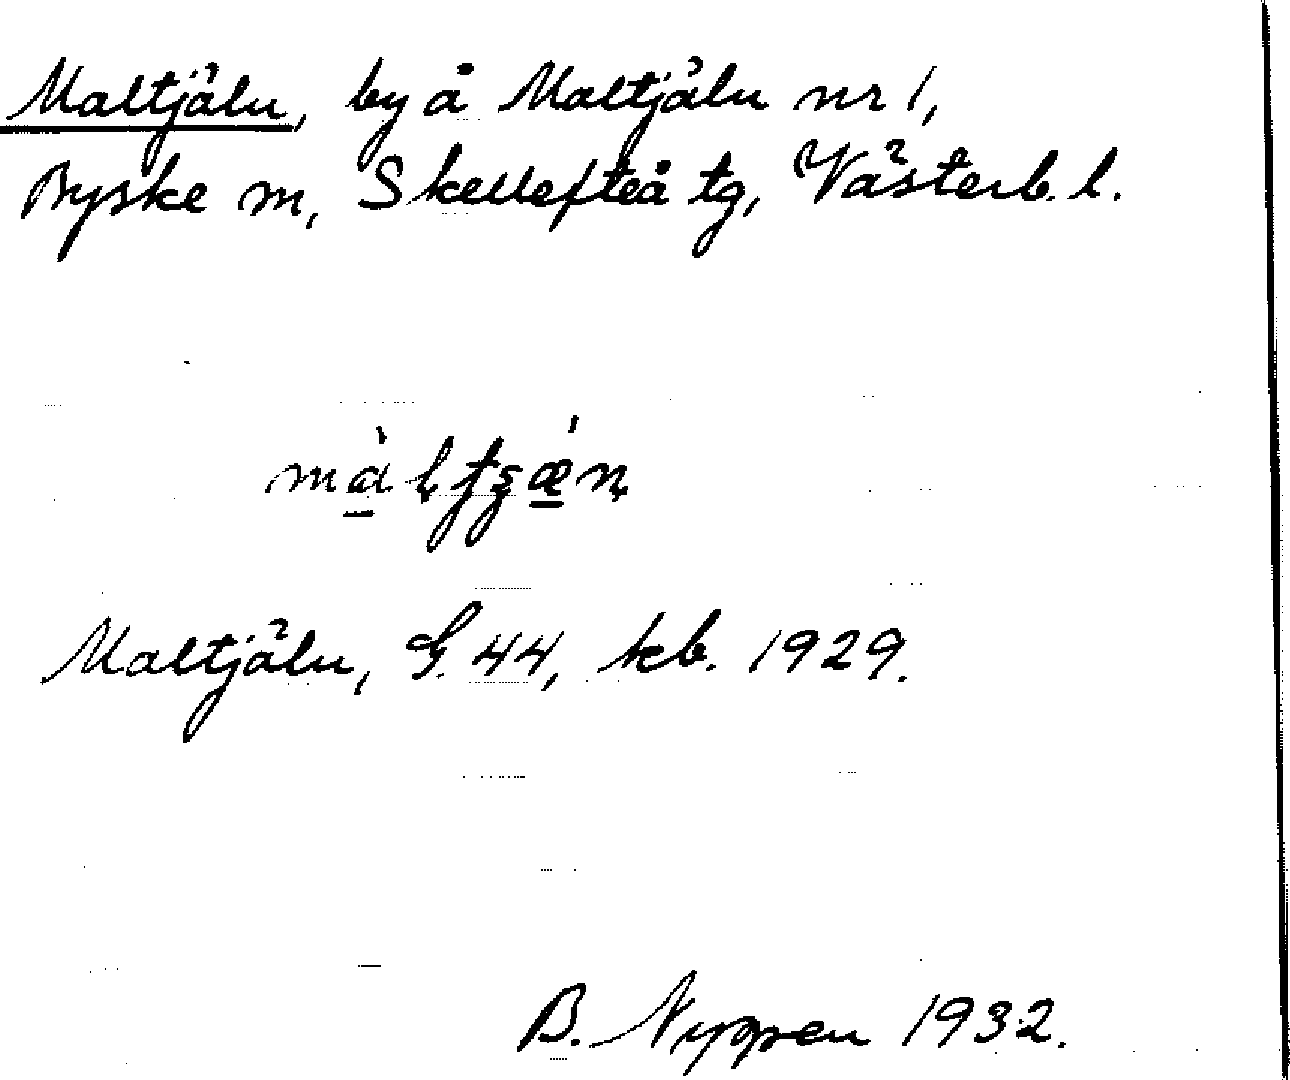 Maltjäln, by å Maltjäln nr 1,
Byske sn, Skellefteå tg, Västerb. l.
Maltjäln, G. 44, kb. 1929.
B. Nyppen 1932.